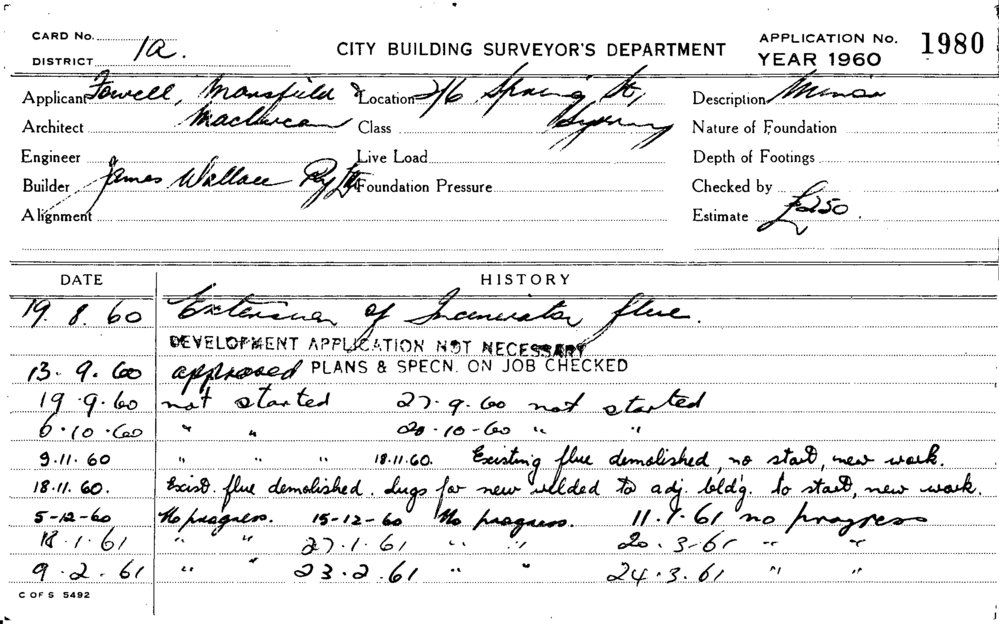 CARD No.
DISTRICT 1a.
CITY BUILDING SURVEYOR'S DEPARTMENT
APPLICATION No. 1980
YEAR 1960
Applicant Fowell, Mansfield & Location 2/6 Spring St, Description Minor
Architect Maclurcan Class Sydney Nature of Foundation
Engineer Live Load Depth of Footings
Builder James Wallace Pty Ltd Foundation Pressure Checked by
Alignment Estimate £250.
DATE HISTORY
19.8.60 Extension of Incinerator flue.
DEVELOPMENT APPLICATION NOT NECESSARY
13.9.60 approved PLANS & SPECN. ON JOB CHECKED
19.9.60 not started 27.9.60 not started
6.10.60 " " 20-10-60 " "
9.11.60 " " " 18.11.60. Existing flue demolished, no start, new work.
18.11.60. Exist. flue demolished. Lugs for new welded to adj. bldg. to start, new work.
5-12-60 No progress. 15-12-60 No progress. 11.1.61 no progress
18.1.61 " " 27.1.61 " " 20.3-61 " "
9.2.61 " " 23.2.61 " " 24.3.61 " "
C OF S 5492